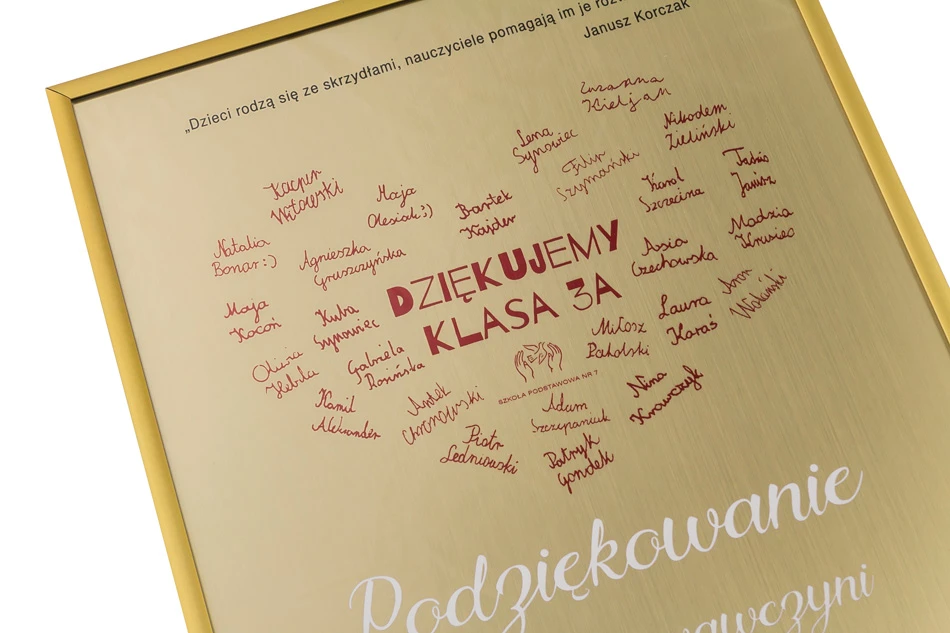 „Dzieci rodzą się ze skrzydłami, nauczyciele pomagają im je
Janusz Korczak
Zuzanna
Kieljan
Lena
Synowiec
Nikodem
Zieliński
Filip
Szymański
Kacper
Witowski
Maja
Olesiak :)
Bartek
Kajder
Karol
Szczecina
Tadzio
Janisz
Natalia
Bonar :)
Agnieszka
Gruszczyńska
DZIĘKUJEMY
KLASA 3A
Asia
Czechowska
Madzia
Krusiec
Maja
Kocoń
Kuba
Synowiec
Laura
Karaś
Aron
Wolański
Oliwia
Hebda
Gabriela
Rosińska
Miłosz
Pokolski
SZKOŁA PODSTAWOWA NR 7
Kamil
Aleksander
Antek
Chronowski
Adam
Szczepaniuk
Nina
Krawczyk
Piotr
Ledniowski
Patryk
Gondek
Podziękowanie